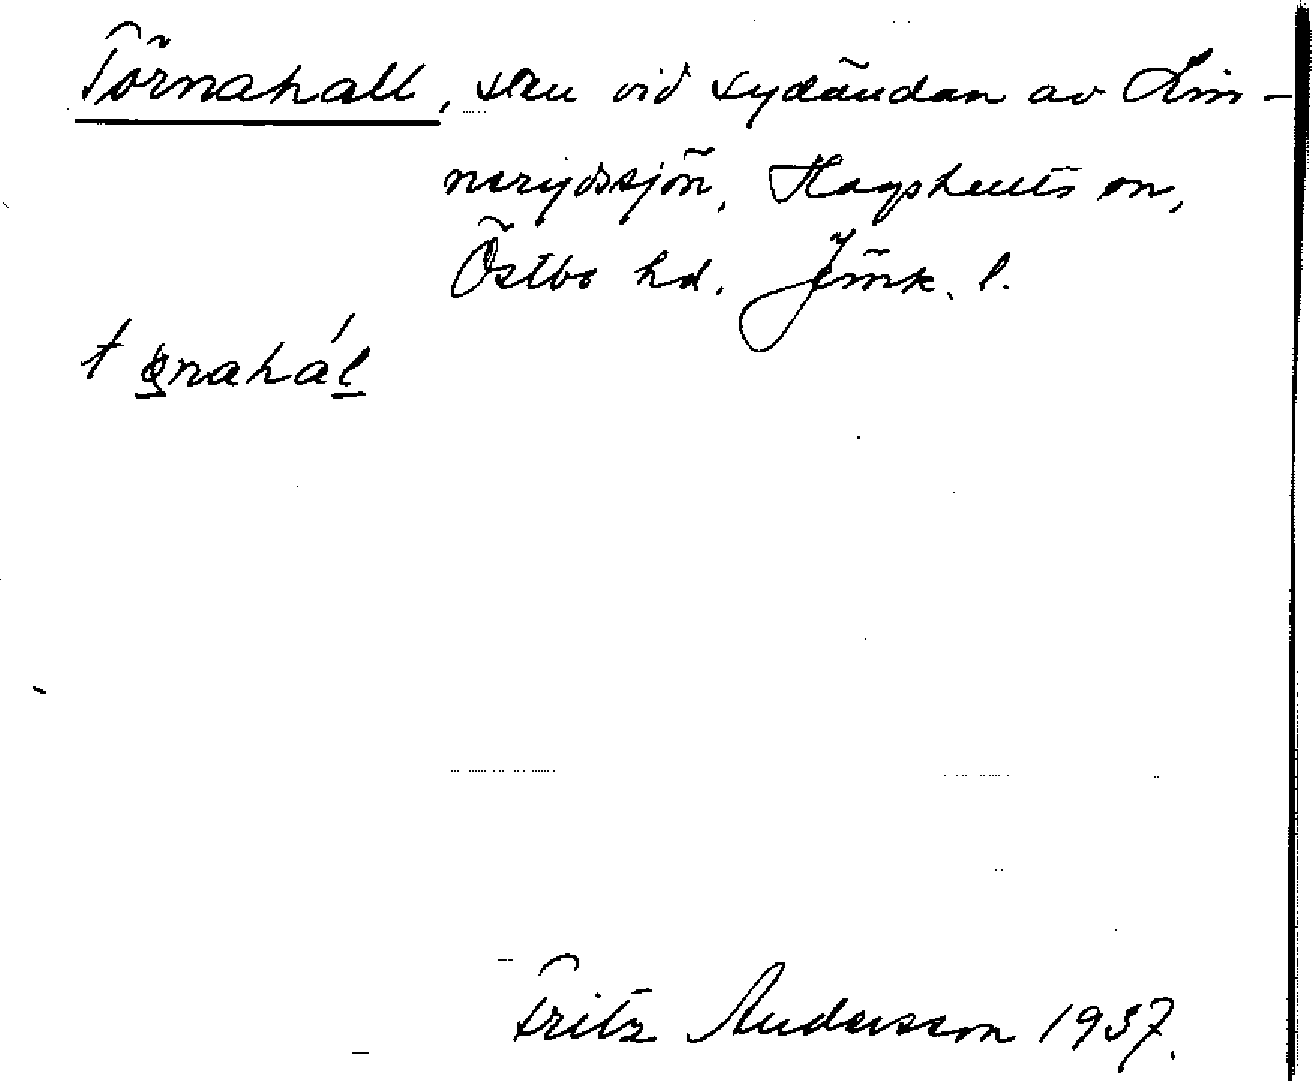 Törnahall, sten vid sydändan av Lin-
nerydssjön, Hagshults sn,
Östbo hd. Jönk. l.
Fritz Andersson 1937.